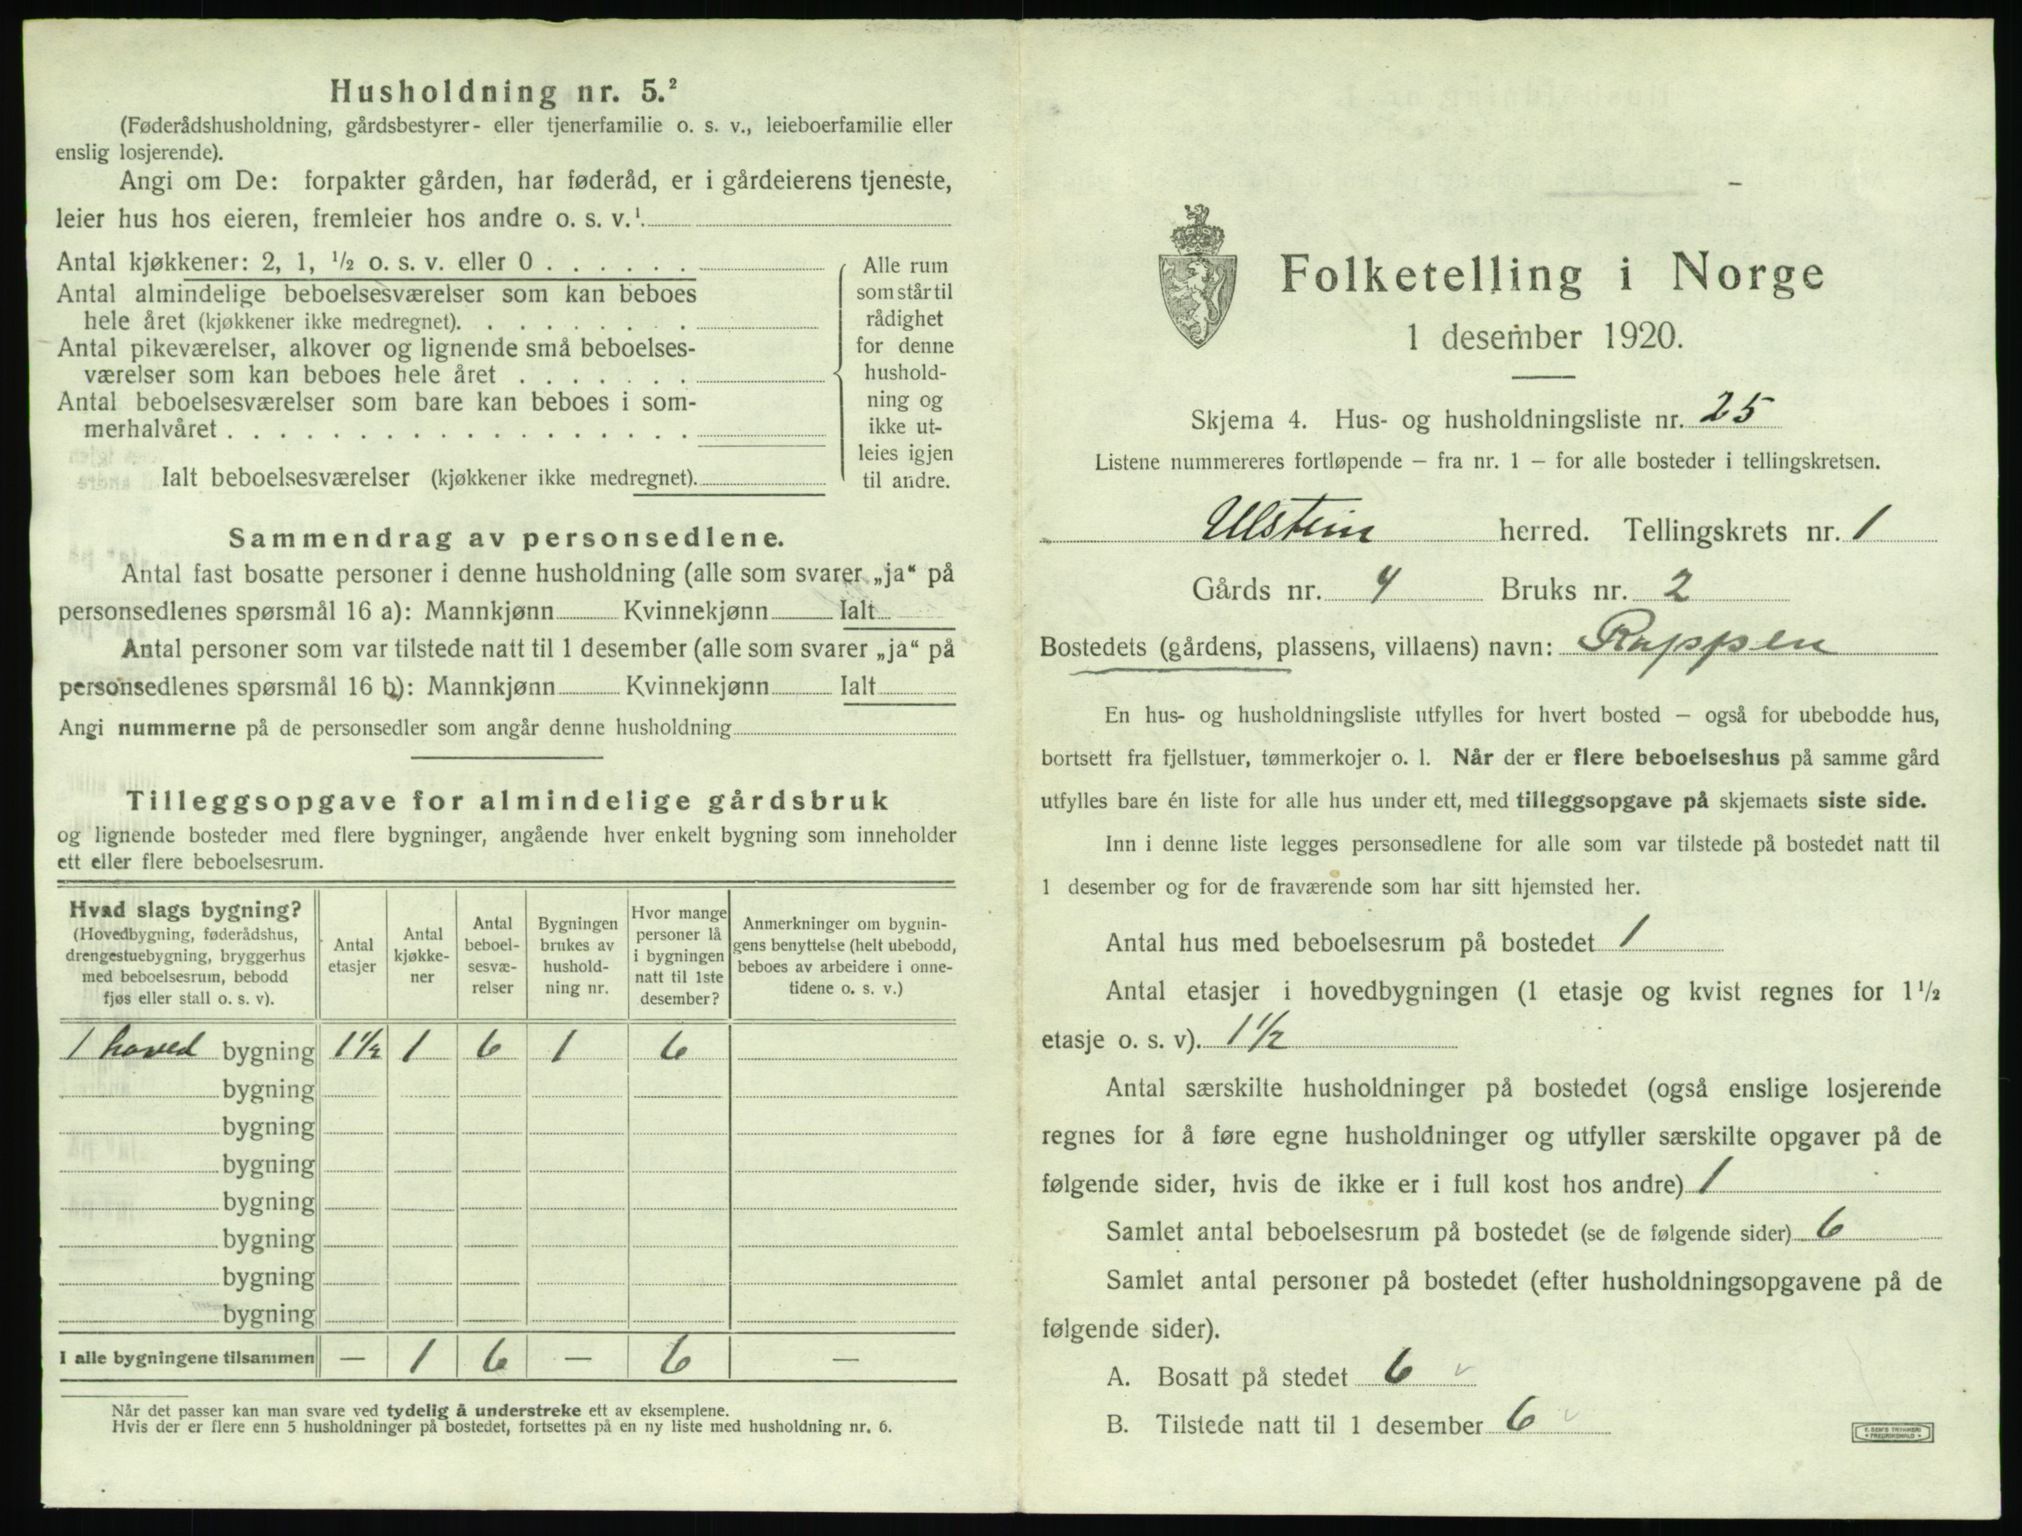 Husholdning nr. 5.²
(Føderådshusholdning, gårdsbestyrer- eller tjenerfamilie o. s. v., leieboerfamilie eller
enslig losjerende).
Angi om De: forpakter gården, har føderåd, er i gårdeierens tjeneste,
leier hus hos eieren, fremleier hos andre o. s. v.¹
Antal kjøkkener: 2, 1, ½ o. s. v. eller 0 . . . . . .
Antal almindelige beboelsesværelser som kan beboes
hele året (kjøkkener ikke medregnet). . . . . . . . .
Antal pikeværelser, alkover og lignende små beboelses-
værelser som kan beboes hele året . . . . . . .
Antal beboelsesværelser som bare kan beboes i som-
merhalvåret . . . . . . . . . . . . . . . . . .
Ialt beboelsesværelser (kjøkkener ikke medregnet).
Alle rum
som står til
rådighet
for denne
hushold-
ning og
ikke ut-
leies igjen
til andre.
Sammendrag av personsedlene.
Antal fast bosatte personer i denne husholdning (alle som svarer „ja“ på
personsedlenes spørsmål 16 a): Mannkjønn Kvinnekjønn Ialt
Antal personer som var tilstede natt til 1 desember (alle som svarer „ja“ på
personsedlenes spørsmål 16 b): Mannkjønn Kvinnekjønn Ialt
Angi nummerne på de personsedler som angår denne husholdning
Tilleggsopgave for almindelige gårdsbruk
og lignende bosteder med flere bygninger, angående hver enkelt bygning som inneholder
ett eller flere beboelsesrum.
Hvad slags bygning?
(Hovedbygning, føderådshus,
drengestuebygning, bryggerhus
med beboelsesrum, bebodd
fjøs eller stall o. s. v).
Antal
etasjer
Antal
kjøkke-
ner
Antal
beboel-
sesvæ-
relser
Bygningen
brukes av
hushold-
ning nr.
Hvor mange
personer lå
i bygningen
natt til 1ste
desember?
Anmerkninger om bygnin-
gens benyttelse (helt ubebodd,
beboes av arbeidere i onne-
tidene o. s. v.)
1 hoved bygning 1½ 1 6 1 6
bygning
bygning
bygning
bygning
bygning
bygning
bygning
I alle bygningene tilsammen — 1 6 — 6 —
Når det passer kan man svare ved tydelig å understreke ett av eksemplene.
Hvis der er flere enn 5 husholdninger på bostedet, fortsettes på en ny liste med husholdning nr. 6.
Folketelling i Norge
1 desember 1920.
Skjema 4. Hus- og husholdningsliste nr. 25
Listene nummereres fortløpende — fra nr. 1 — for alle bosteder i tellingskretsen.
Ulstein herred. Tellingskrets nr. 1
Gårds nr. 4 Bruks nr. 2
Bostedets (gårdens, plassens, villaens) navn: Rappen
En hus- og husholdningsliste utfylles for hvert bosted — også for ubebodde hus,
bortsett fra fjellstuer, tømmerkojer o. l. Når der er flere beboelseshus på samme gård
utfylles bare én liste for alle hus under ett, med tilleggsopgave på skjemaets siste side.
Inn i denne liste legges personsedlene for alle som var tilstede på bostedet natt til
1 desember og for de fraværende som har sitt hjemsted her.
Antal hus med beboelsesrum på bostedet 1
Antal etasjer i hovedbygningen (1 etasje og kvist regnes for 1½
etasje o. s. v). 1½
Antal særskilte husholdninger på bostedet (også enslige losjerende
regnes for å føre egne husholdninger og utfyller særskilte opgaver på de
følgende sider, hvis de ikke er i full kost hos andre) 1
Samlet antal beboelsesrum på bostedet (se de følgende sider) 6
Samlet antal personer på bostedet (efter husholdningsopgavene på de
følgende sider).
A. Bosatt på stedet 6 v
B. Tilstede natt til 1 desember 6 v